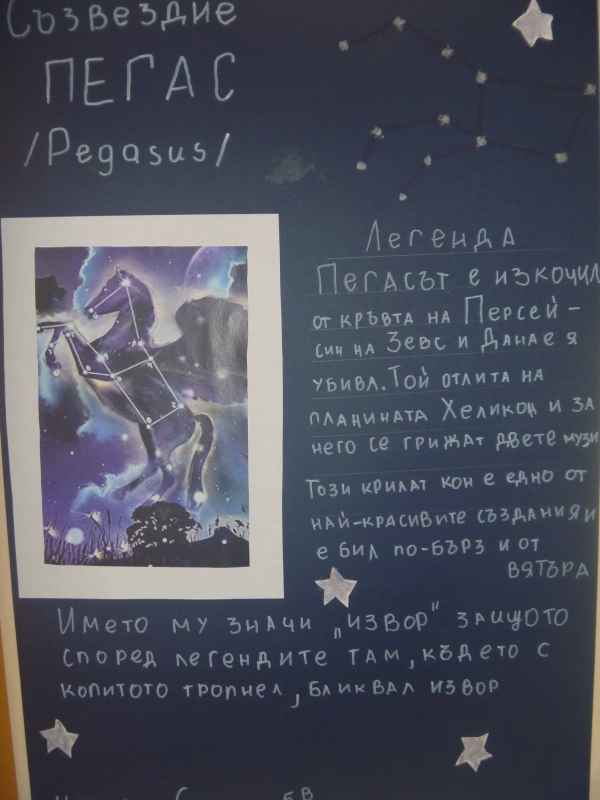 Съзвездие
ПЕГАС
/Pegasus/
Легенда
Пегасът е изкочил
от кръвта на Персей -
син на Зевс и Данае я
убива. Той отлита на
планината Хеликон и за
него се грижат двете музи
Този крилат кон е едно от
най-красивите създания и
е бил по-бърз и от
вятъра
Името му значи „извор" защото
според легендите там, където с
копитото тропнел, бликвал извор